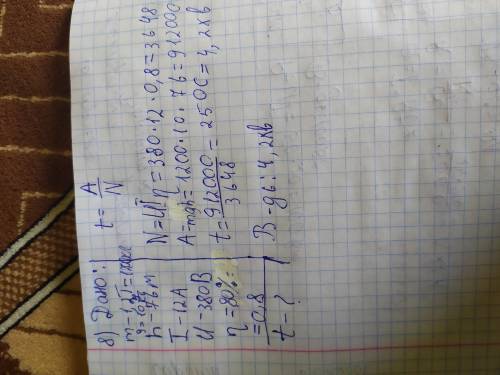 8) Дано:
m = 1,2 т = 1200 кг
g = 10
h = 76 м
I = 12А
U = 380В
η = 80% =
= 0,8
t - ?
t = A/N
N = UIη = 380·12·0,8 = 3648
A = mgh = 1200·10·76 = 912000
t = 912000/3648 = 250с = 4,2хв
В-дь: 4,2хв